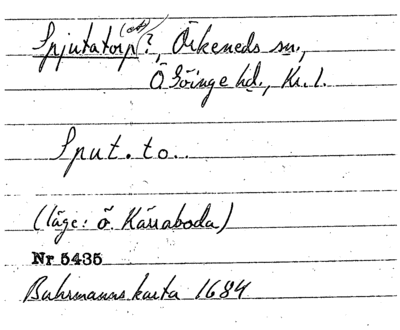 Spjutatorp?, Örkeneds sn.,
Ö Göinge hd., Kr. l.
Sput.to..
(läge: ö. Kärraboda)
Nr 5435
Buhrmanns karta 1684